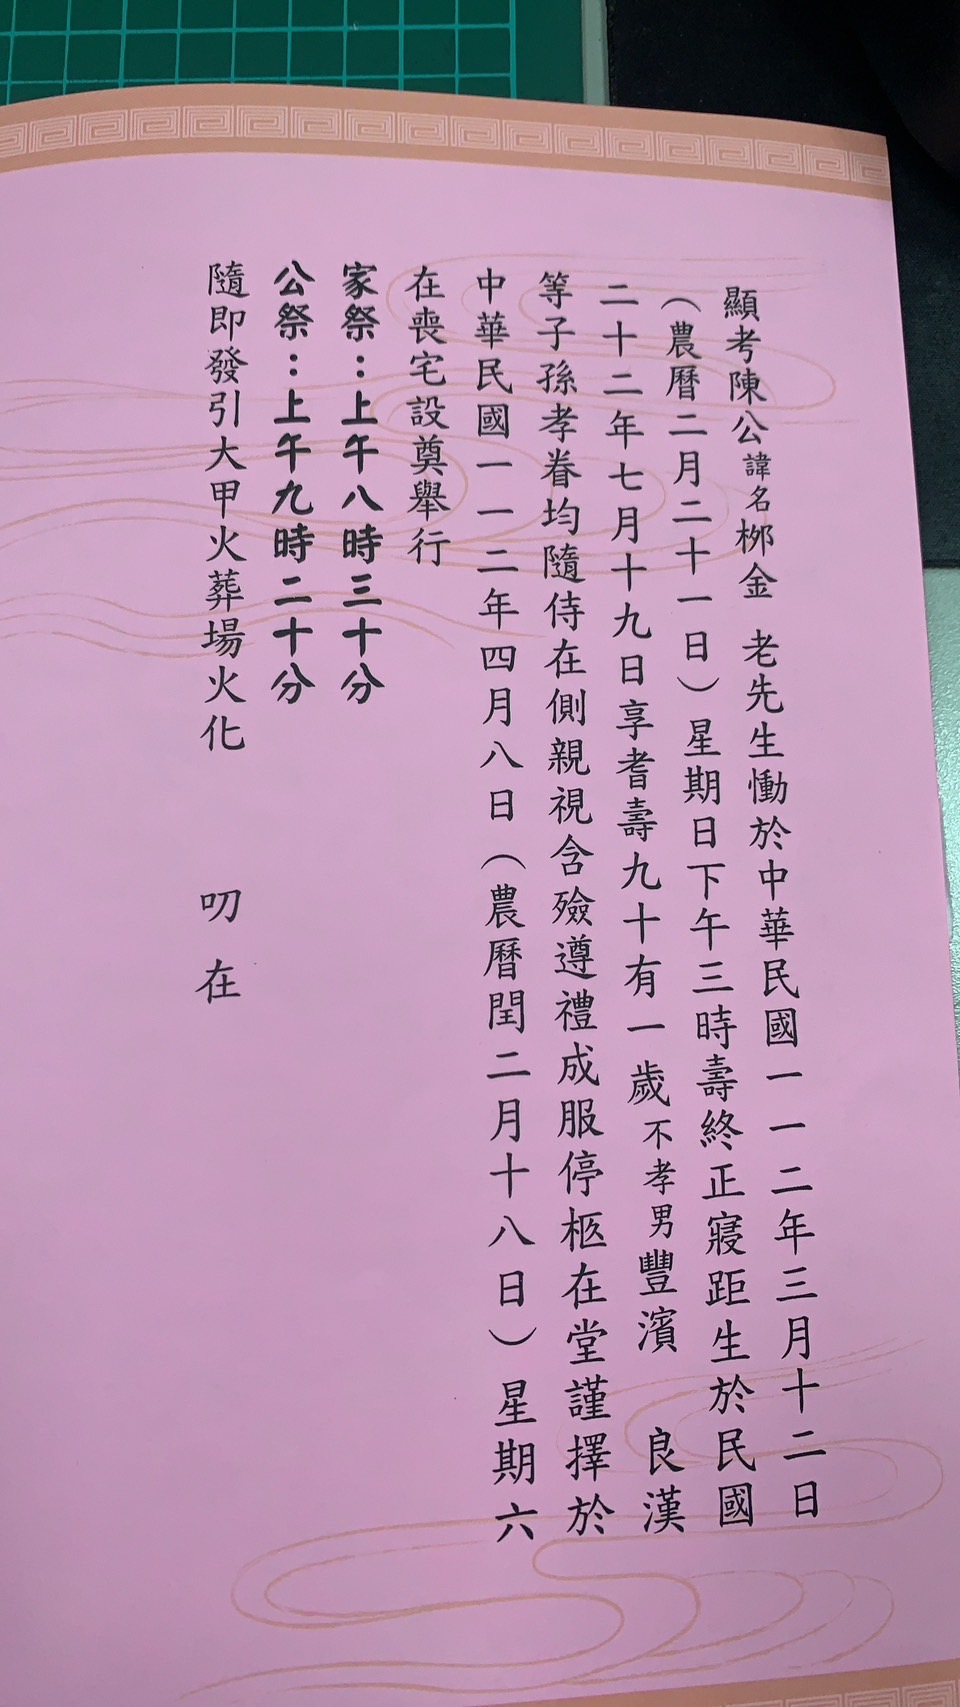 顯考陳公諱名柳金　老先生慟於中華民國一一二年三月十二日
（農曆二月二十一日）星期日下午三時壽終正寢距生於民國
二十二年七月十九日享耆壽九十有一歲不孝男豐濱　良漢
等子孫孝眷均隨侍在側親視含殮遵禮成服停柩在堂謹擇於
中華民國一一二年四月八日（農曆閏二月十八日）星期六
在喪宅設奠舉行
家祭：上午八時三十分
公祭：上午九時二十分
隨即發引大甲火葬場火化　　叨在